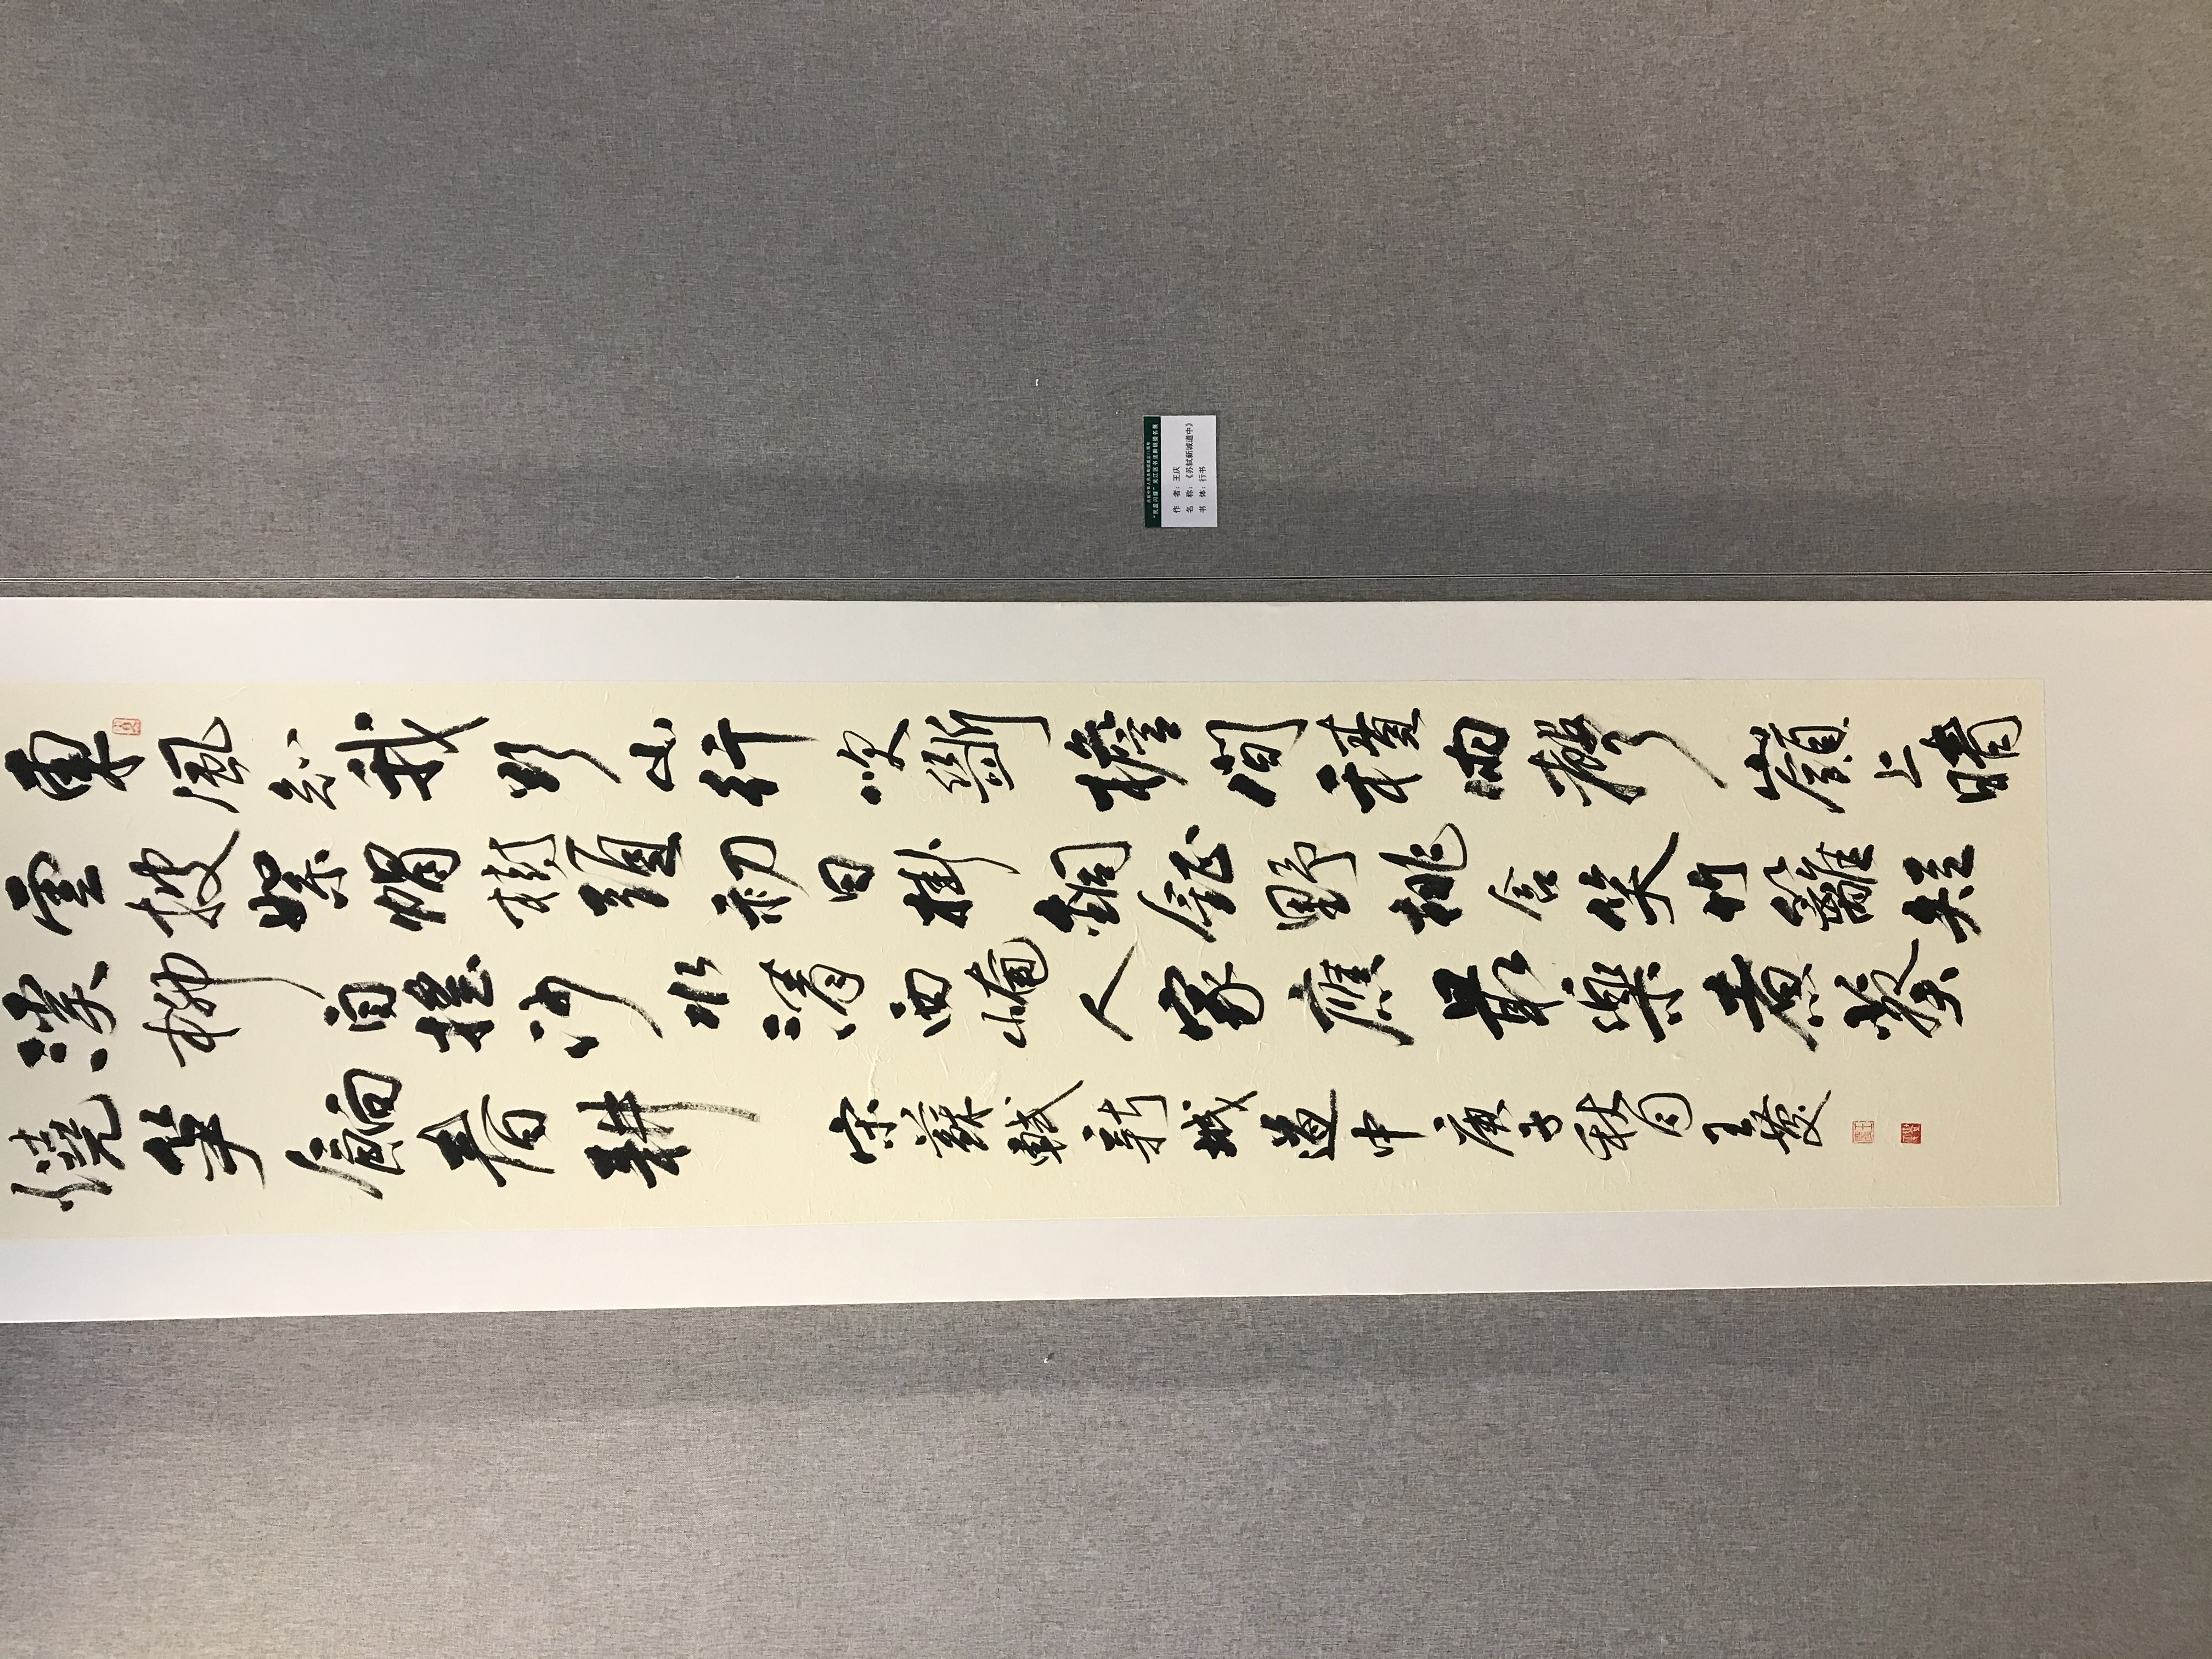 東風知我欲山行吹斷檐間積雨聲嶺上晴
雲披絮帽樹頭初日掛銅鉦野桃含笑竹籬短
溪柳自搖沙水清西崦人家應最樂煮葵
燒笋餉春耕
宋蘇軾新城道中庚子秋月王慶
吴江区书法新锐提名展
作 者：王庆
名 称：《苏轼新城道中》
书 体：行书